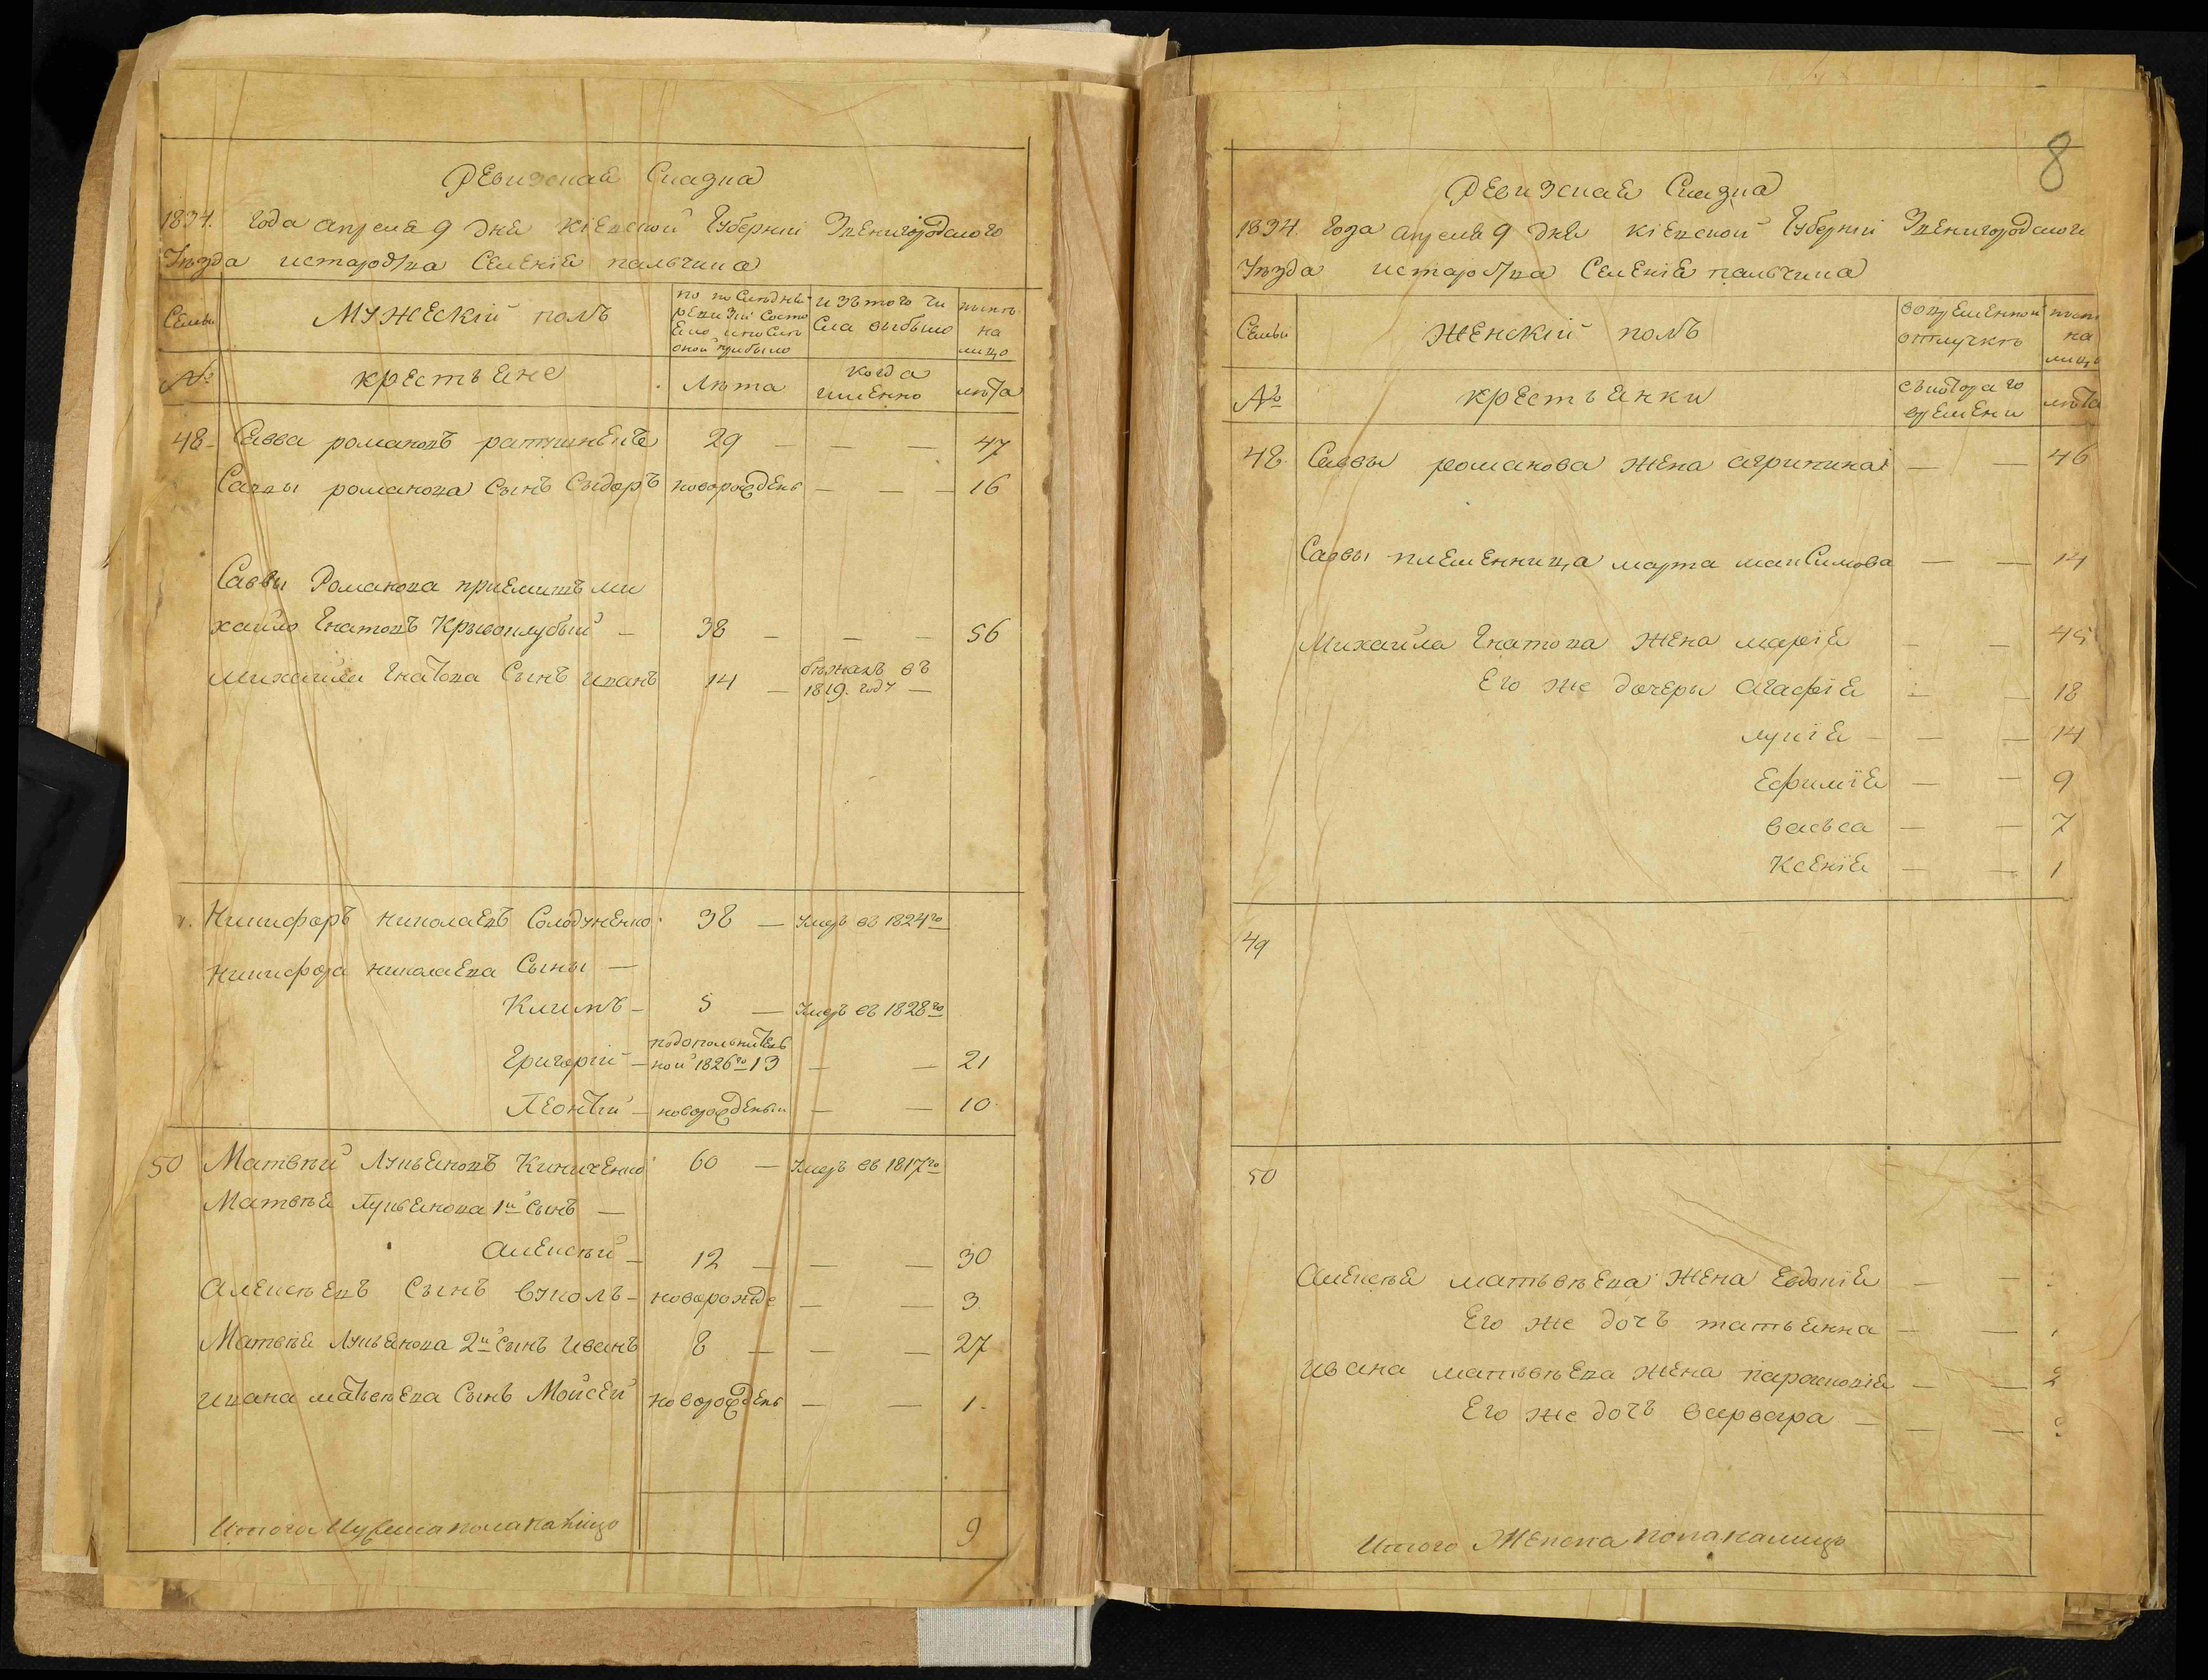 Ревизская Сказка
1834. Года апреля 9 дня Кіевской Губерніи Звенигородского
Уѣзда Селеніе пальчика
Семьи
Мужескій полъ
по последней ревизіи состояло и после оной прибыло
изъ того числа выбыло
ныне на лицо
№
крестьяне
Лѣта
когда именно
лѣта
48 Савва романовъ 29 — — — 47
Саввы романова Сынъ Сыдоръ новорожденъ — — — 16
Саввы Романова приемишъ Ми
хайло Гнатовъ Крывохлубый — 38 — — — 56
михайли Гнатова Сынъ иванъ 14 — бѣжалъ въ 1819. году —
Никифоръ николаевъ Солодуненко 38 — Умеръ въ 1824го
Никифора николаева Сыны —
Климъ — 5 — Умеръ въ 1828го
Григорий — подополнитель
ной 1826го 13 — — 21
Леонтій — новорожденый — — 10
50 Матвѣй Лукьяновъ Киниченко 60 — Умеръ въ 1817го
Матвѣя Лукьянова 1й сынъ —
Алексѣй — 12 — — — 30
Алексѣевъ Сынъ вуколъ — новорожде — — 3
Матвѣя Лукьянова 2й Сынъ Иванъ 8 — — — 27
ивана матьвѣева Сынъ Мойсей новорожденъ — — 1.
Итого Мужеска пола на лицо 9
8
Ревизская Сказка
1834. Года апреля 9 дня Кіевской Губерніи Звенигородского
Уѣзда Селеніе пальчика
Семьи
Женскій полъ
во временной отлучкѣ
ныне на лицо
№
крестьянки
съ которого времени
лѣта
48. Саввы романова жена агрипина — — 46
Саввы племенница марта максимова — — 14
Михайла Гнатова жена марія — — 45
Его же дочеры агафія — — 18
лукія — — — 14
Ефимія — — 9
васьса — — 7
Ксенія — — 1
49
50
Алексѣя матьвѣева жена Евдокія — —
Его же дочъ татьянна — —
ивана матьвѣева жена парасковія — — 2
Его же дочъ варвара — — —
Итого Женска пола на лицо